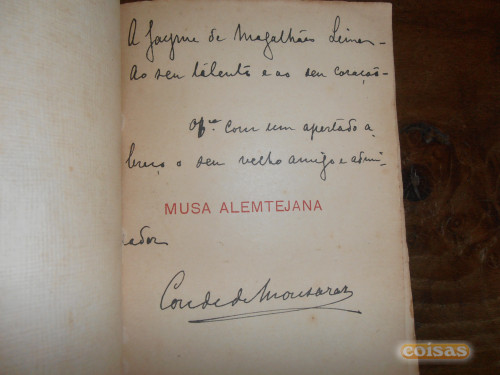 A Jayme de Magalhães Lima -
Ao seu talento e ao seu coração -
Of.ce com um apertado a
braço o seu velho amigo e admi-
MUSA ALEMTEJANA
rador
Conde de Monsaraz
coisas